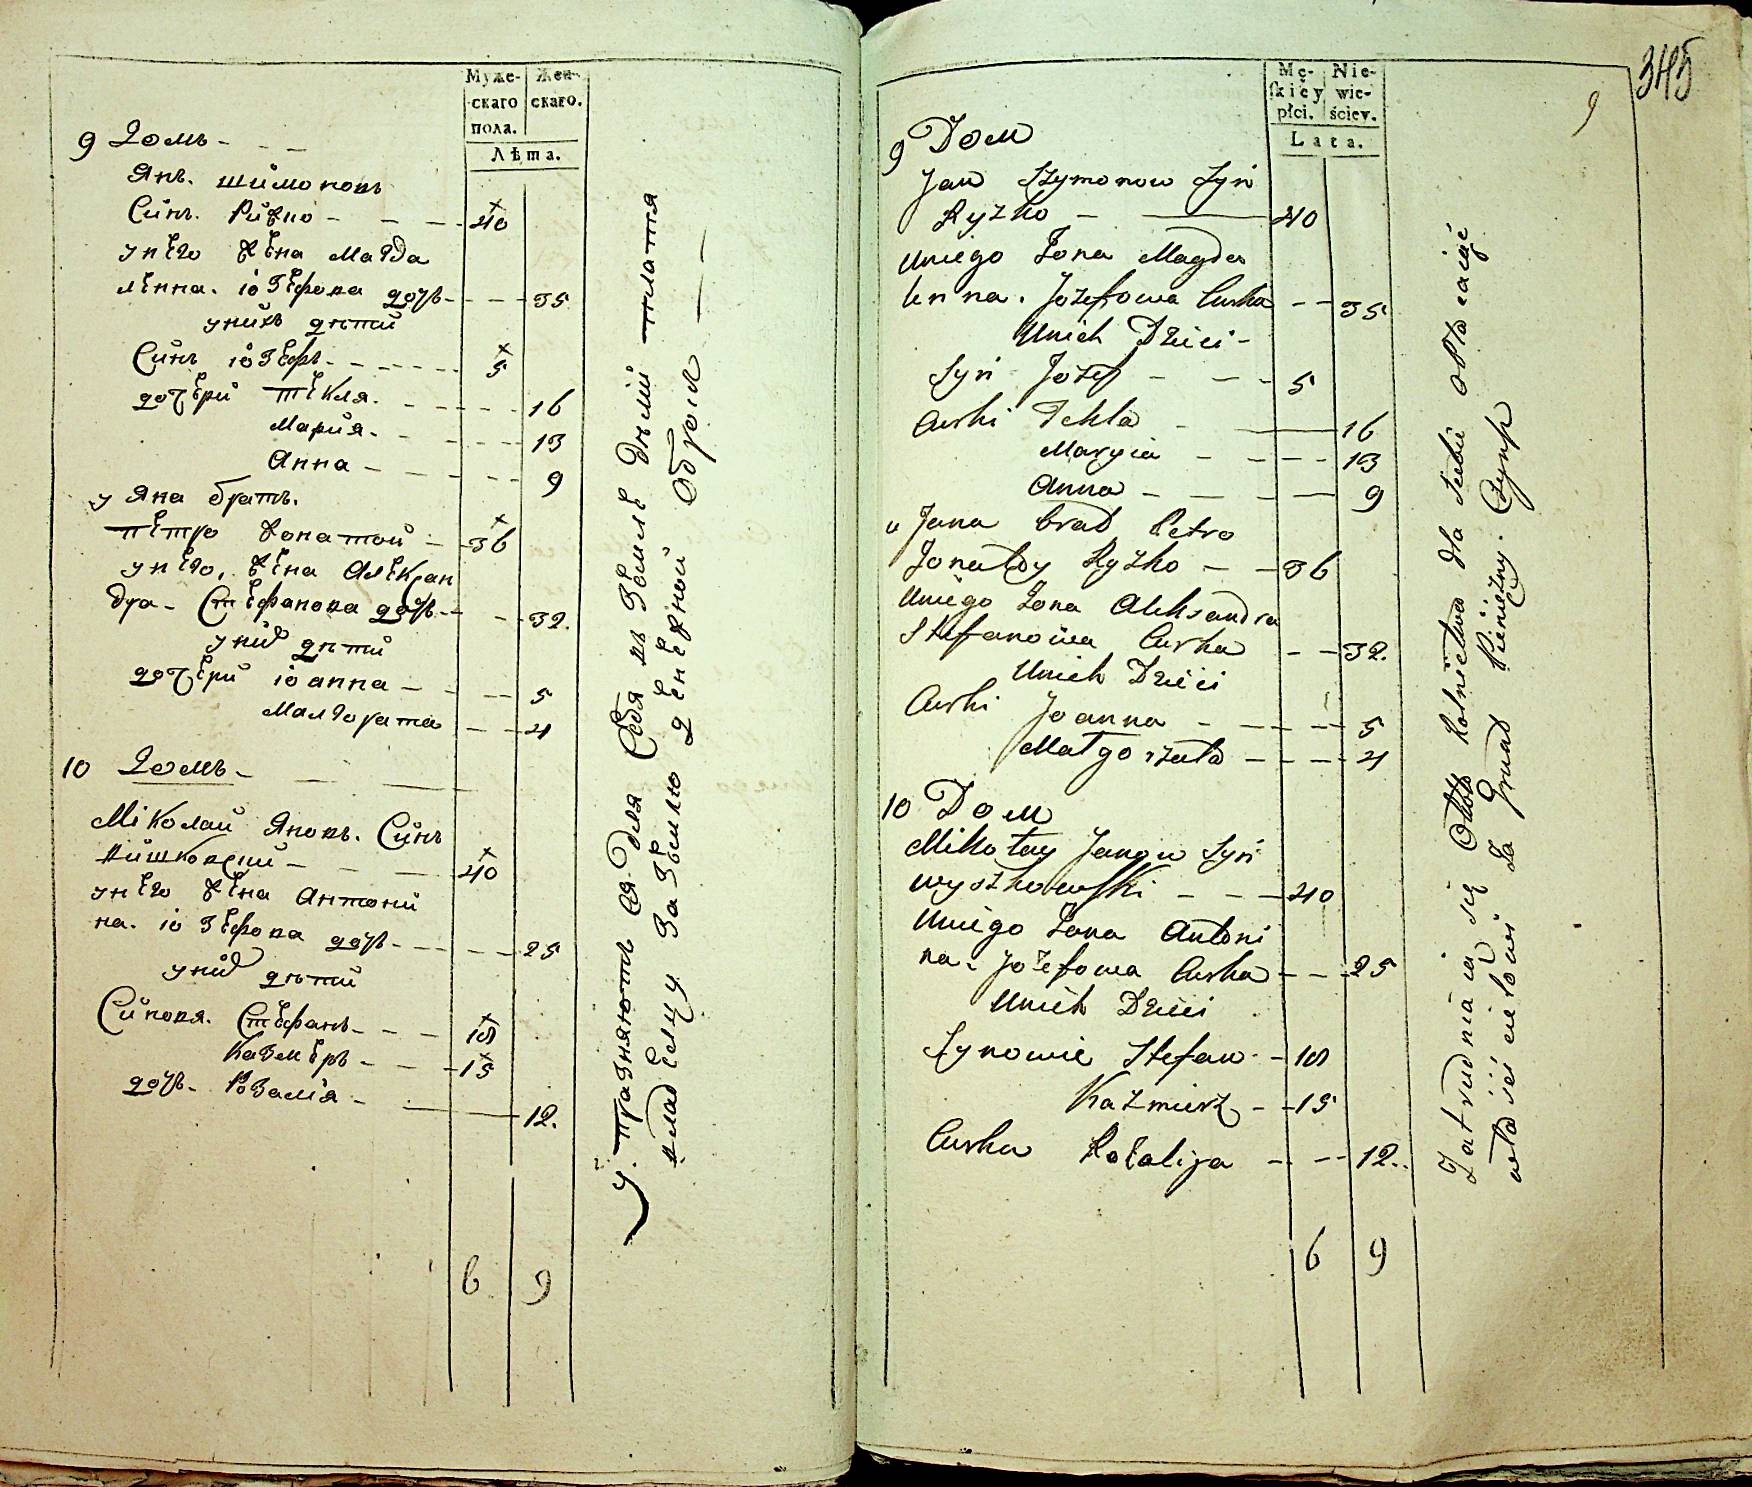 Муже-
скаго
пола.
Жен-
скаго.
Лѣта.
9 Домъ - - -
Янъ. шимоновъ
Синъ. Рижко - - - 40
у него жена Магда
ленна. іозефова дочь - - - 35
у нихъ дѣти
Синъ іозефъ - - - 5
дочери Текля. - - - 16
Мария. - - - 13
Анна - - - 9
у Яна братъ.
Петро жонатой - 36
у него, жена Алекъсан
дра - Стефанова дочь - - - 32.
у них дѣти
дочери іоанна - - - 5
Малгората - - 4
10 Домъ -
Міколай Яновъ. Синъ
вишковский - - - 40
у него жена Антони
на. іозефова дочь - - - 25
у них дѣти
Синовя. Стефанъ - - - 18
Казмеръ - - - 15
дочь - Розалія - - - 12.
6 9
упражняютъ ся для Себя въ Земле дѣлії платя
владелцу За Землю денежной Оброкъ
345
9
Mę-
skiéy
płci.
Nie-
wie-
ściey.
Lata.
9 Dom
Jan Szymonow Syn
Ryzko - 40
Uniego Zona Magda
lenna. Jozefowa Curka - - 35
Unich Dzieci -
Syn Jozef - - - 5
Curki Tekla - 16
Maryia - - - 13
Anna - - - 9
u Jana brad Petro
Zonaty Ryzko - - 36
Uniego Zona Aleksandra
Stefanowa Curka - - 32.
Unich Dzieci
Curki Joanna - - - 5
Małgorzata - - - 4
10 Dom
Mikołay Janow Syn
wyszkowski - - - 40
Uniego Zona Antoni
na. Jozefowa Curka - - - 25
Unich Dzieci
Synowie Stefan - 18
Kazmierz - - 15
Curka Rozalija - - - 12..
6 9
Zatrudniaią się Około Rolnictwa dla siebie opłacaiąć
właścicielowi Za Grunt Pieniężny. Czynsz